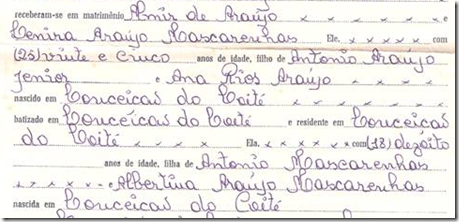 receberam-se em matrimônio Almir de Araújo x x x x e
Cenira Araújo Mascarenhas Ele, x x x x com
(25) vinte e cinco anos de idade, filho de Antonio Araújo
Jenior e Ana Rios Araújo x x x x
nascido em Conceicao do Coité x x x x x x x
batizado em Conceicao do Coité e residente em Conceicao
do Coité x x x x Ela. x x x x com (18) dezoito
anos de idade, filha de Antonio Mascarenhas
x x x x x e Albertina Araujo Mascarenhas
nascida em Conceicao do Coité